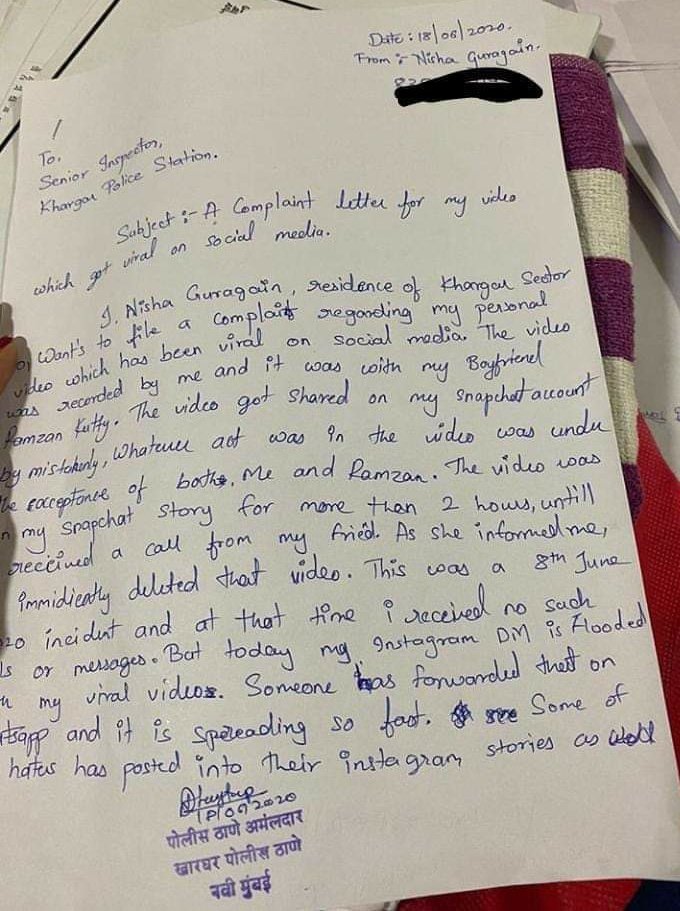 Date : 18/06/2020.
From :- Nisha Guragain.
To,
Senior Inspector,
Khargar Police Station.
Subject :- A Complaint letter for my video
which got viral on social media.
I, Nisha Guragain, residence of Khargar Sector
Want's to file a complaint regarding my personal
video which has been viral on social media. The video
was recorded by me and it was with my Boyfriend
Ramzan Kutty. The video got shared on my snapchat account
by mistakenly, Whatever act was in the video was under
the eacceptance of both, Me and Ramzan. The video was
on my snapchat story for more than 2 hours, untill
received a call from my fried. As she informed me,
immidiently deleted that video. This was a 8th June
20 incident and at that time i received no such
ls or messages. But today my Instagram DM is flooded
my viral video. Someone has forwarded that on
tsapp and it is spereading so fast. Some of
hates has posted into their instagram stories as well
पोलीस ठाणे अमंलदार
खारघर पोलीस ठाणे
नवी मुंबई